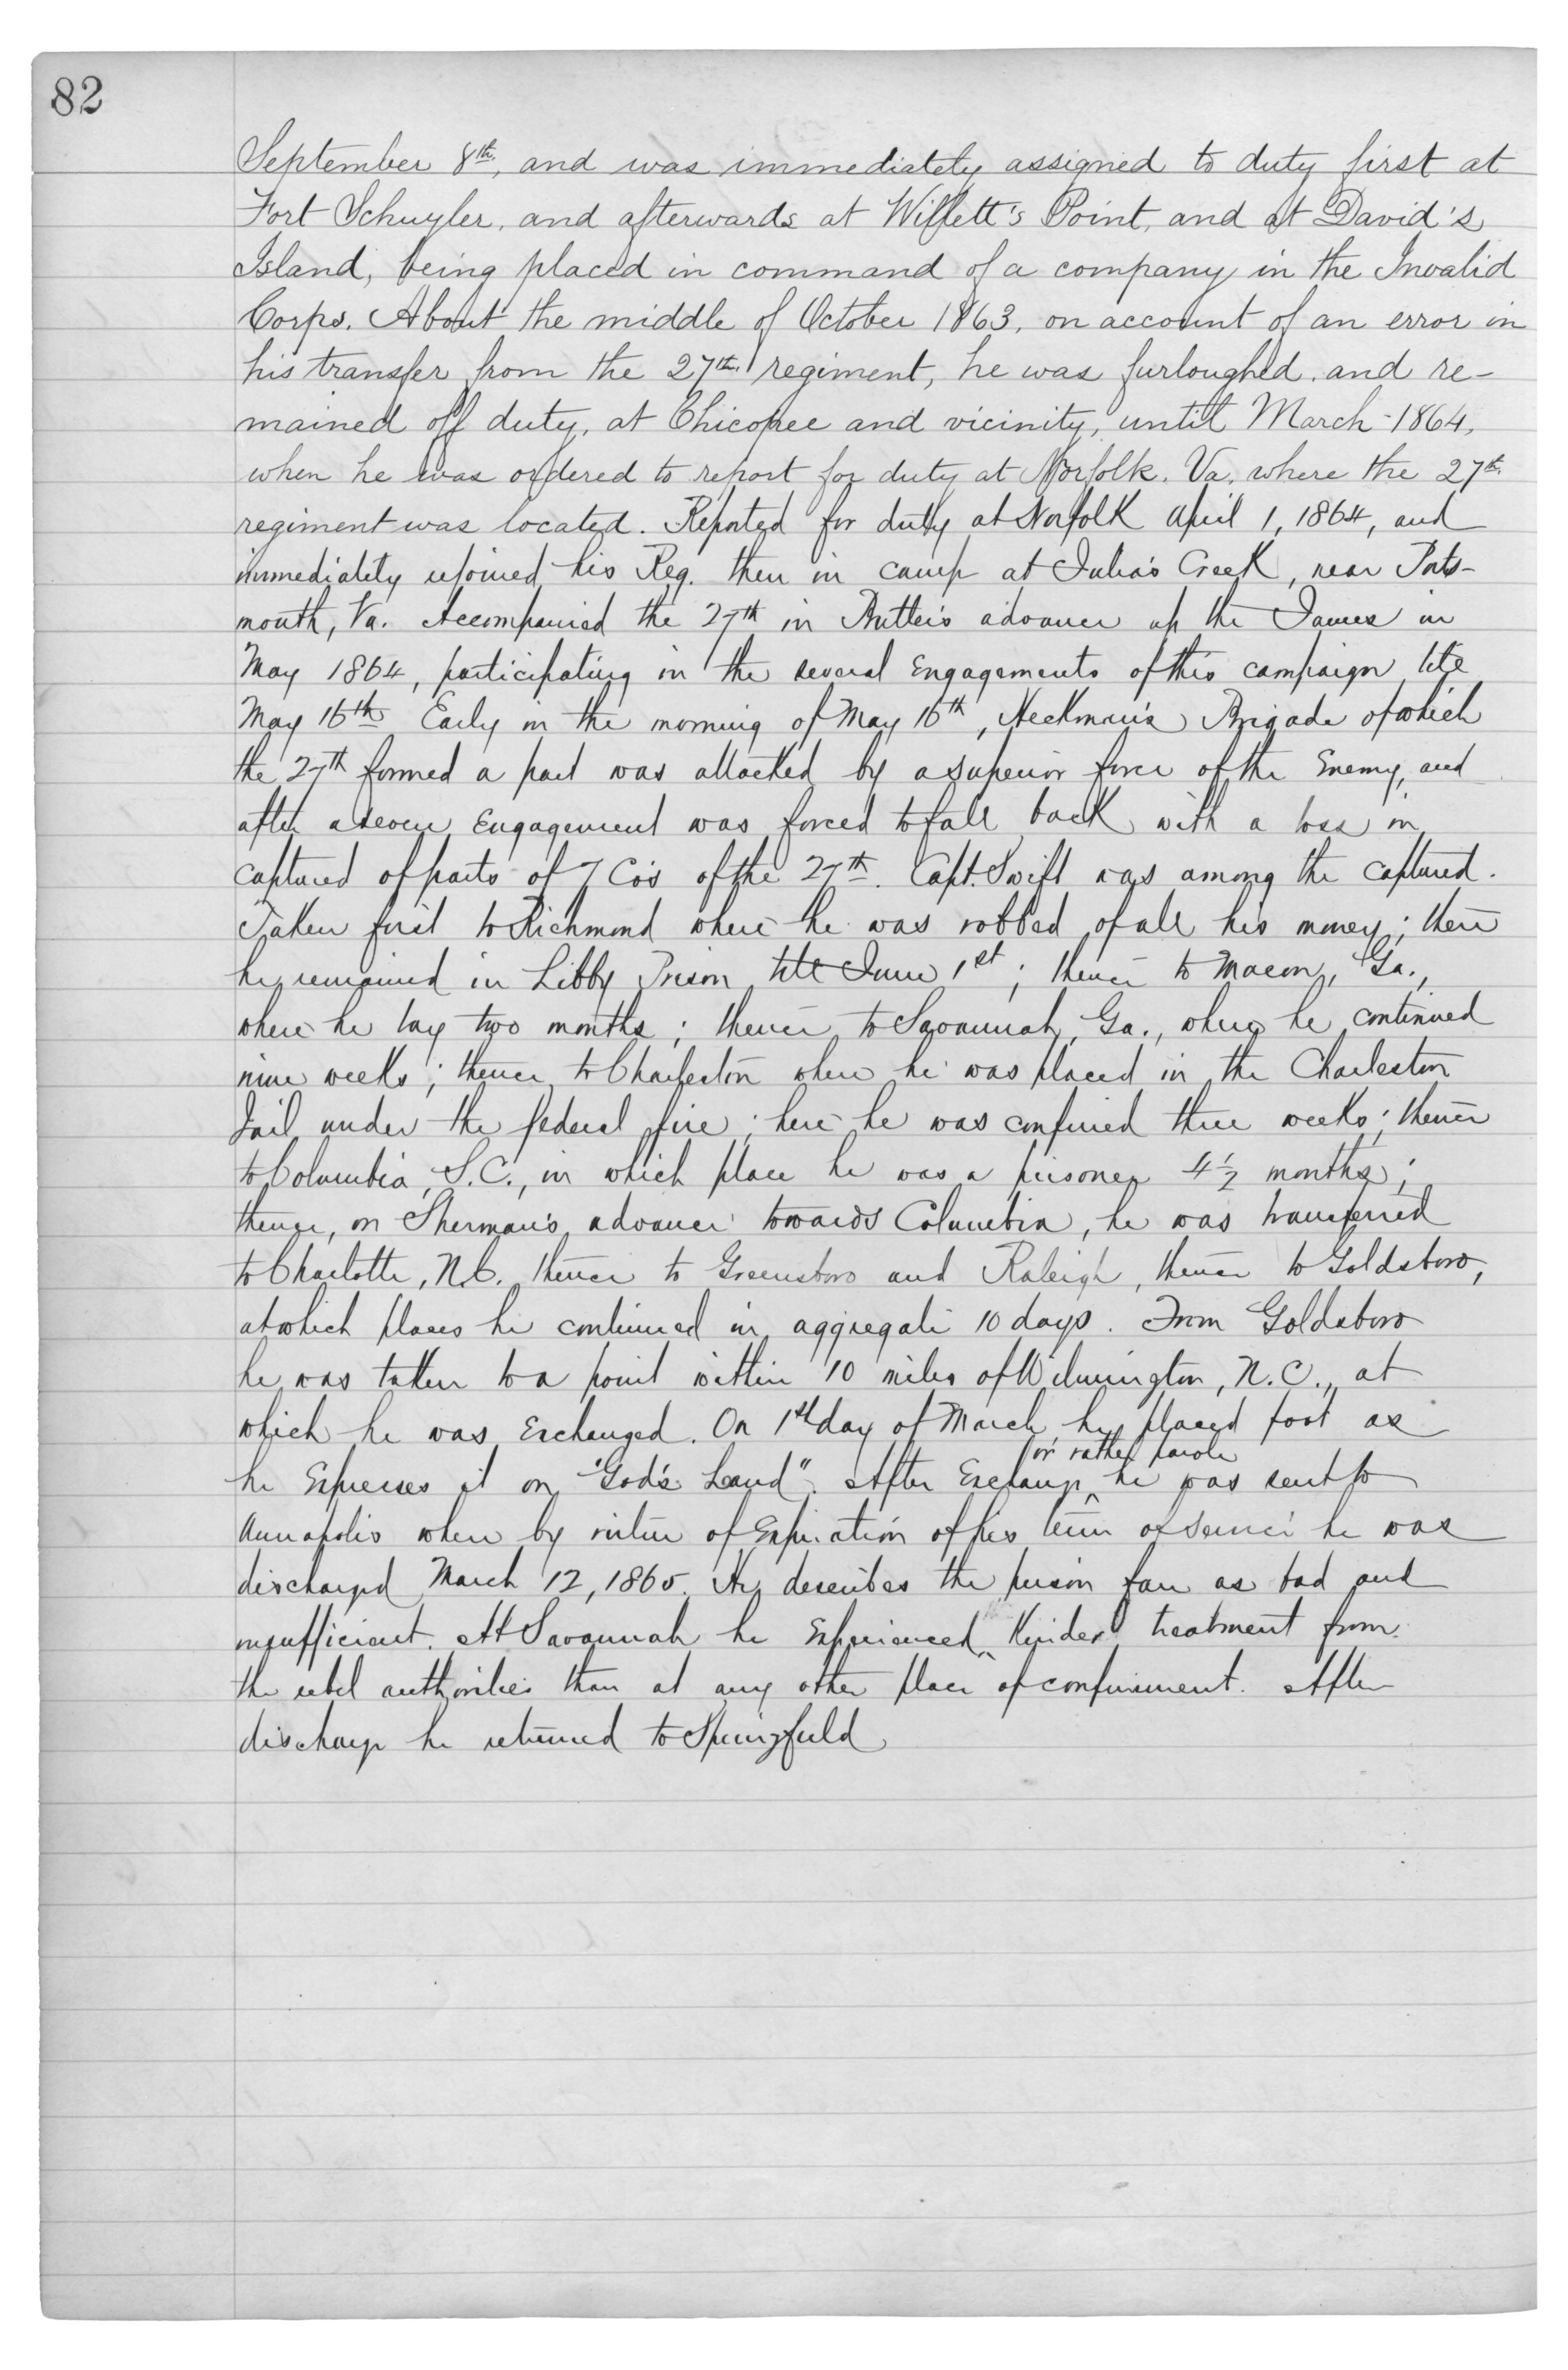 82
September 8th, and was immediately assigned to duty first at
Fort Schuyler, and afterwards at Willett's Point, and at David's
Island, being placed in command of a company in the Invalid
Corps. About the middle of October 1863, on account of an error in
his transfer from the 27th regiment, he was furloughed, and re-
mained off duty, at Chicopee and vicinity, until March 1864,
when he was ordered to report for duty at Norfolk, Va. where the 27th
regiment was located. Reported for duty at Norfolk April 1, 1864, and
immediately rejoined his Reg. then in camp at Julia's Creek, near Ports-
mouth, Va. Accompanied the 27th in Butler's advance up the James in
May 1864, participating in the several Engagements of this campaign till
May 16th Early in the morning of May 16th, Heckman's Brigade of which
the 27th formed a part was attacked by a superior force of the Enemy, and
after a severe Engagement was forced to fall back with a loss in
captured of parts of 7 Co's of the 27th. Capt. Swift was among the captured.
Taken first to Richmond where he was robbed of all his money; there
he remained in Libby Prison till June 1st; thence to Macon, Ga.,
where he lay two months; thence to Savannah, Ga., where he continued
nine weeks; thence to Charleston where he was placed in the Charleston
Jail under the federal fire; here he was confined three weeks; thence
to Columbia, S.C., in which place he was a prisoner 4½ months;
thence, on Sherman's advance towards Columbia, he was transferred
to Charlotte, N.C. thence to Greensboro and Raleigh, thence to Goldsboro,
at which places he continued in aggregate 10 days. From Goldsboro
he was taken to a point within 10 miles of Wilmington, N.C., at
which he was Exchanged. On 1st day of March he placed foot as
he Expresses it on "God's Land". After Exchange ^ or rather parole he was sent to
Annapolis where by virtue of Expiration of his term of service he was
discharged March 12, 1865. He describes the prison fare as bad and
insufficient. At Savannah he Experienced kinder treatment from
the rebel authorities than at any other place of confinement. After
discharge he returned to Springfield